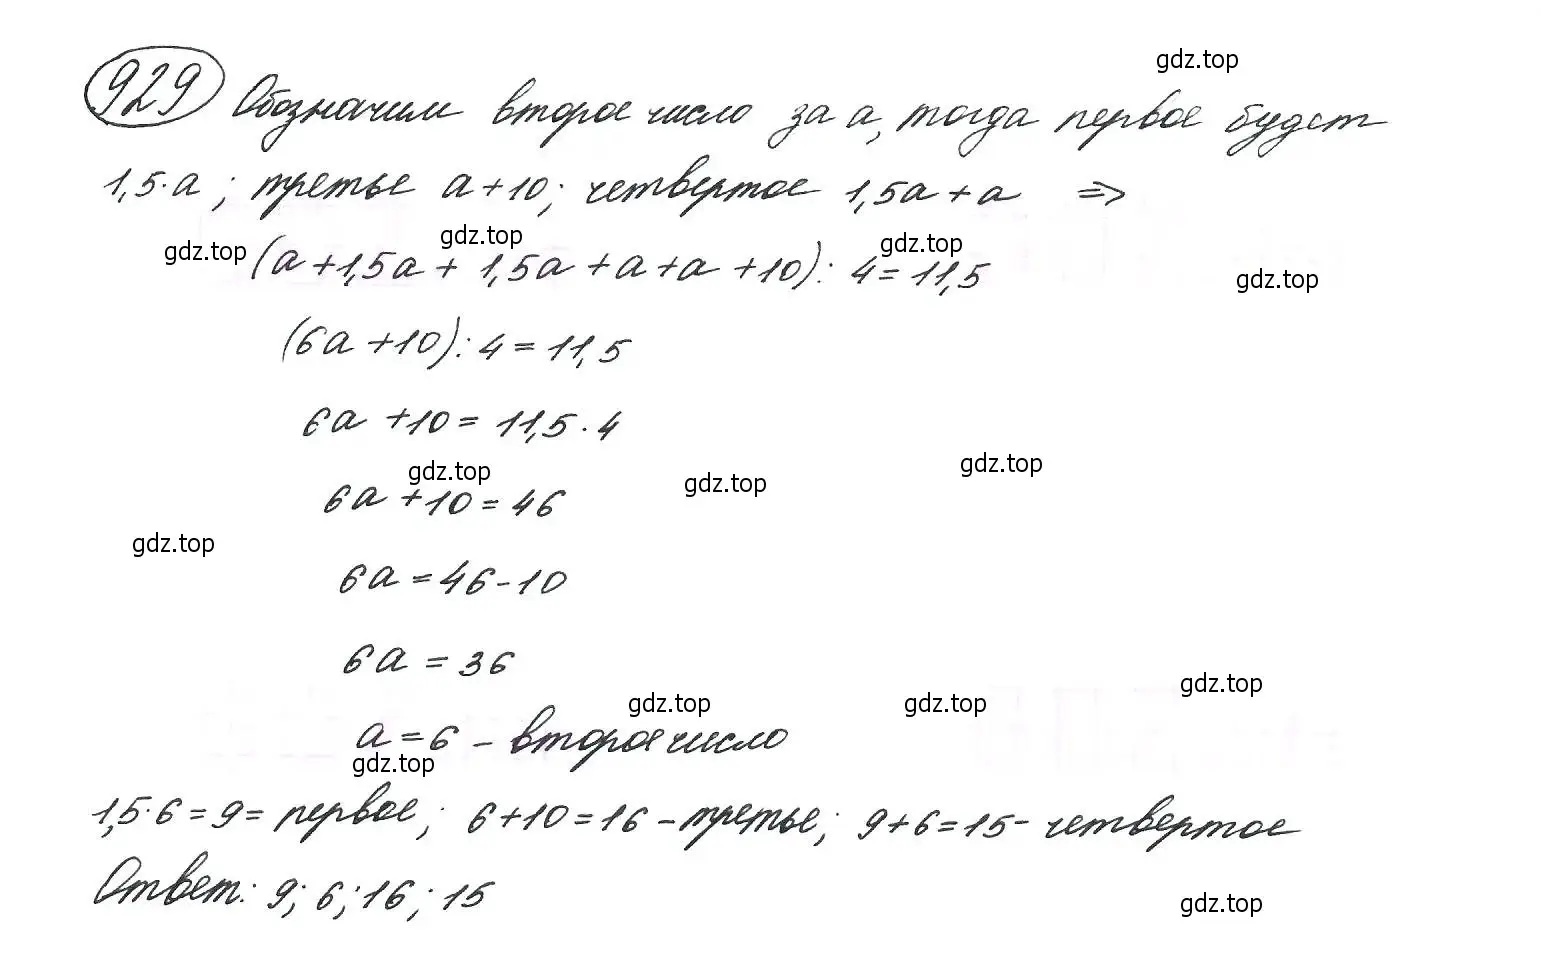 929 Обозначим второе число за а, тогда первое будет
1,5·а; третье а+10; четвертое 1,5а+а =>
(а+1,5а+1,5а+а+а+10):4=11,5
(6а+10):4=11,5
6а+10=11,5·4
6а+10=46
6а=46-10
6а=36
а=6 - второе число
1,5·6=9= первое; 6+10=16 - третье; 9+6=15 - четвертое
Ответ: 9; 6; 16; 15
gdz.top
gdz.top
gdz.top
gdz.top
gdz.top
gdz.top
gdz.top
gdz.top
gdz.top
gdz.top
gdz.top
gdz.top
gdz.top
gdz.top